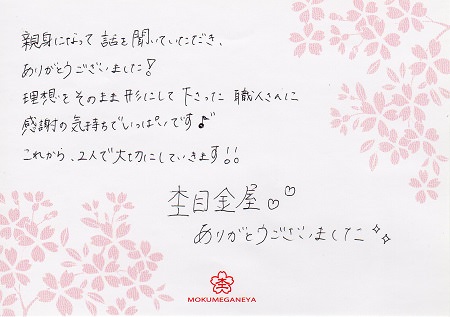 親身になって 話を聞いていただき、
ありがとうございました!
理想をそのまま形にして下さった 職人さんに
感謝の気持ちでいっぱいです♪
これから、2人で大切にしていきます!!
杢目金屋♡♡
ありがとうございました✧✧
杢
MOKUMEGANEYA